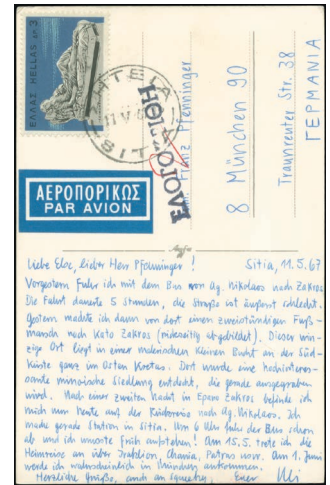 ΕΛΛΑΣ HELLAS ΔΡ. 3
SITEIA
11 V 6
ΕΛΟΓΟΚΡΙΘΗ
ΑΕΡΟΠΟΡΙΚΩΣ
PAR AVION
Franz Pfenninger
8 München 90
Traunreuter Str. 38
ΓΕΡΜΑΝΙΑ
Agfa
Liebe Else, lieber Herr Pfenninger! Sitia, 11.5.67
Vorgestern fuhr ich mit dem Bus von Ag. Nikolaos nach Zakros
Die Fahrt dauerte 5 Stunden, die Straße ist äußerst schlecht.
Gestern machte ich dann von dort einen zweistündigen Fuß-
marsch nach Kato Zakros (rückseitig abgebildet). Dieser win-
zige Ort liegt in einer malerischen kleinen Bucht an der Süd-
küste ganz im Osten Kretas. Dort wurde eine hochinteres-
sante minoische Siedlung entdeckt, die gerade ausgegraben
wird. Nach einer zweiten Nacht in Epano Zakros befinde ich
mich nun heute auf der Rückreise nach Ag. Nikolaos. Ich
mache gerade Station in Sitia. Um 6 Uhr fuhr der Bus schon
ab und ich musste früh aufstehen! Am 15.5. trete ich die
Heimreise an über Iraklion, Chania, Patras usw. Am 1. Juni
werde ich wahrscheinlich in München ankommen.
Herzliche Grüße, auch an Euer Uli